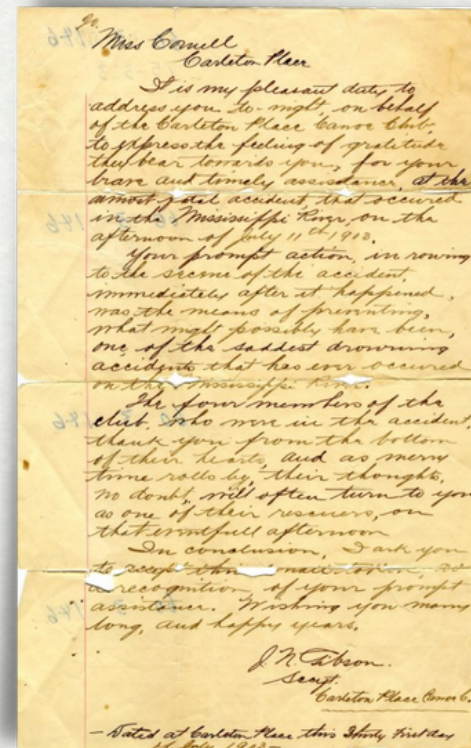 To.
Miss Cornell
Carleton Place
It is my pleasant duty to
address you to-night, on behalf
of the Carleton Place Canoe Club,
to express the feeling of gratitude
they bear towards you, for your
brave and timely assistance, at the
almost fatal accident, that occured
in the Mississippi River, on the
afternoon of July 11th 1903.
Your prompt action, in rowing
to the scene of the accident,
immediately after it happened,
was the means of preventing,
what might possibly have been,
one of the saddest drowning
accidents that has ever occured
on the Mississippi River.
The four members of the
club, who were in the accident,
thank you from the bottom
of their hearts, and as merry
time rolls by, their thoughts,
no doubt, will often turn to you
as one of their rescuers, on
that eventfull afternoon
In conclusion, I ask you
to accept this small token, as
a recognition, of your prompt
assistance. Wishing you many
long, and happy years.
J. N. Gibson.
Secyt.
Carleton Place Canoe C.
- Dated at Carleton Place this Thirty First day
of July 1903 -